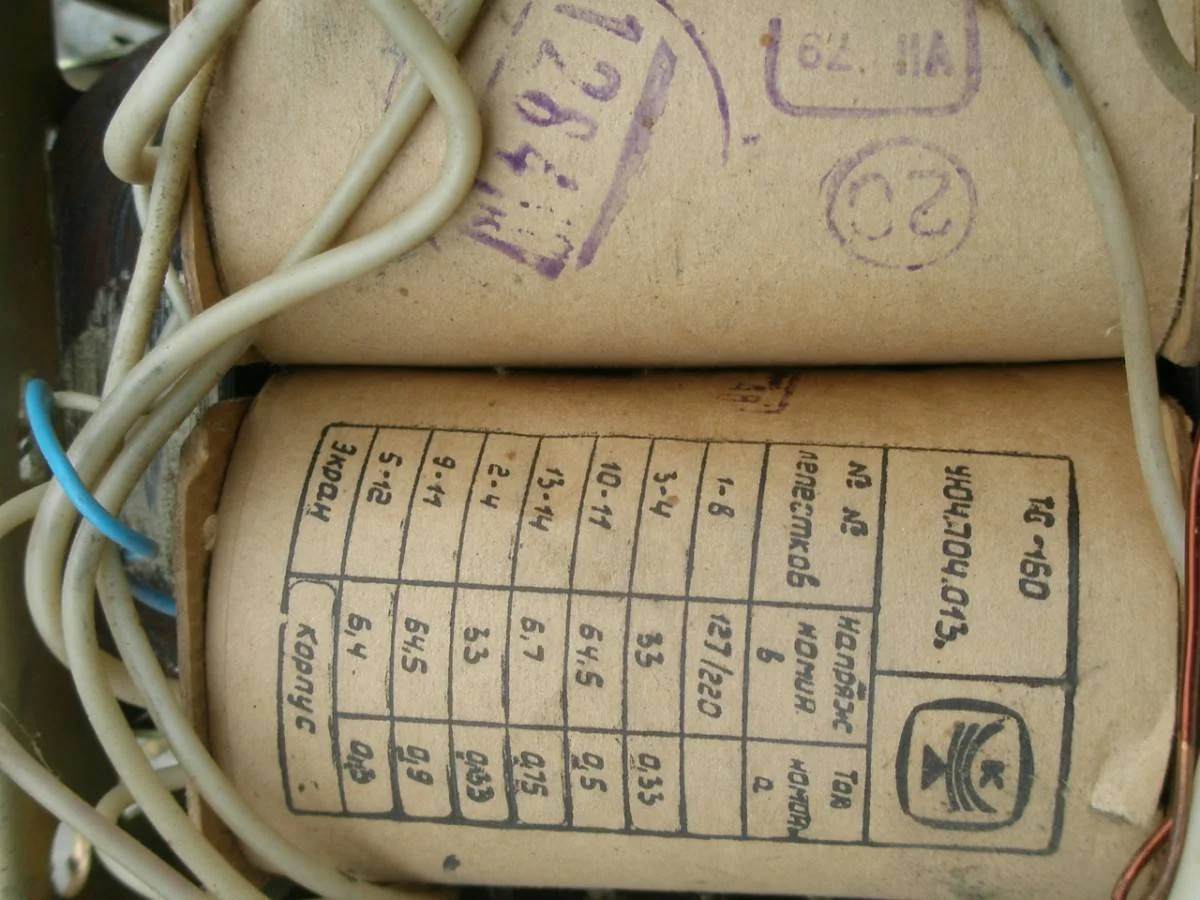 VII 79
20
тс-160
УЮ4.704.013.
К
№ № Напряж Ток
лепестков номин. номин
в а
1-8 127/220
3-4 33 0,33
10-11 64.5 0,5
13-14 6.7 0,75
2-4 33
9-11 64,5 0,9
5-12 6,4
Экран Корпус